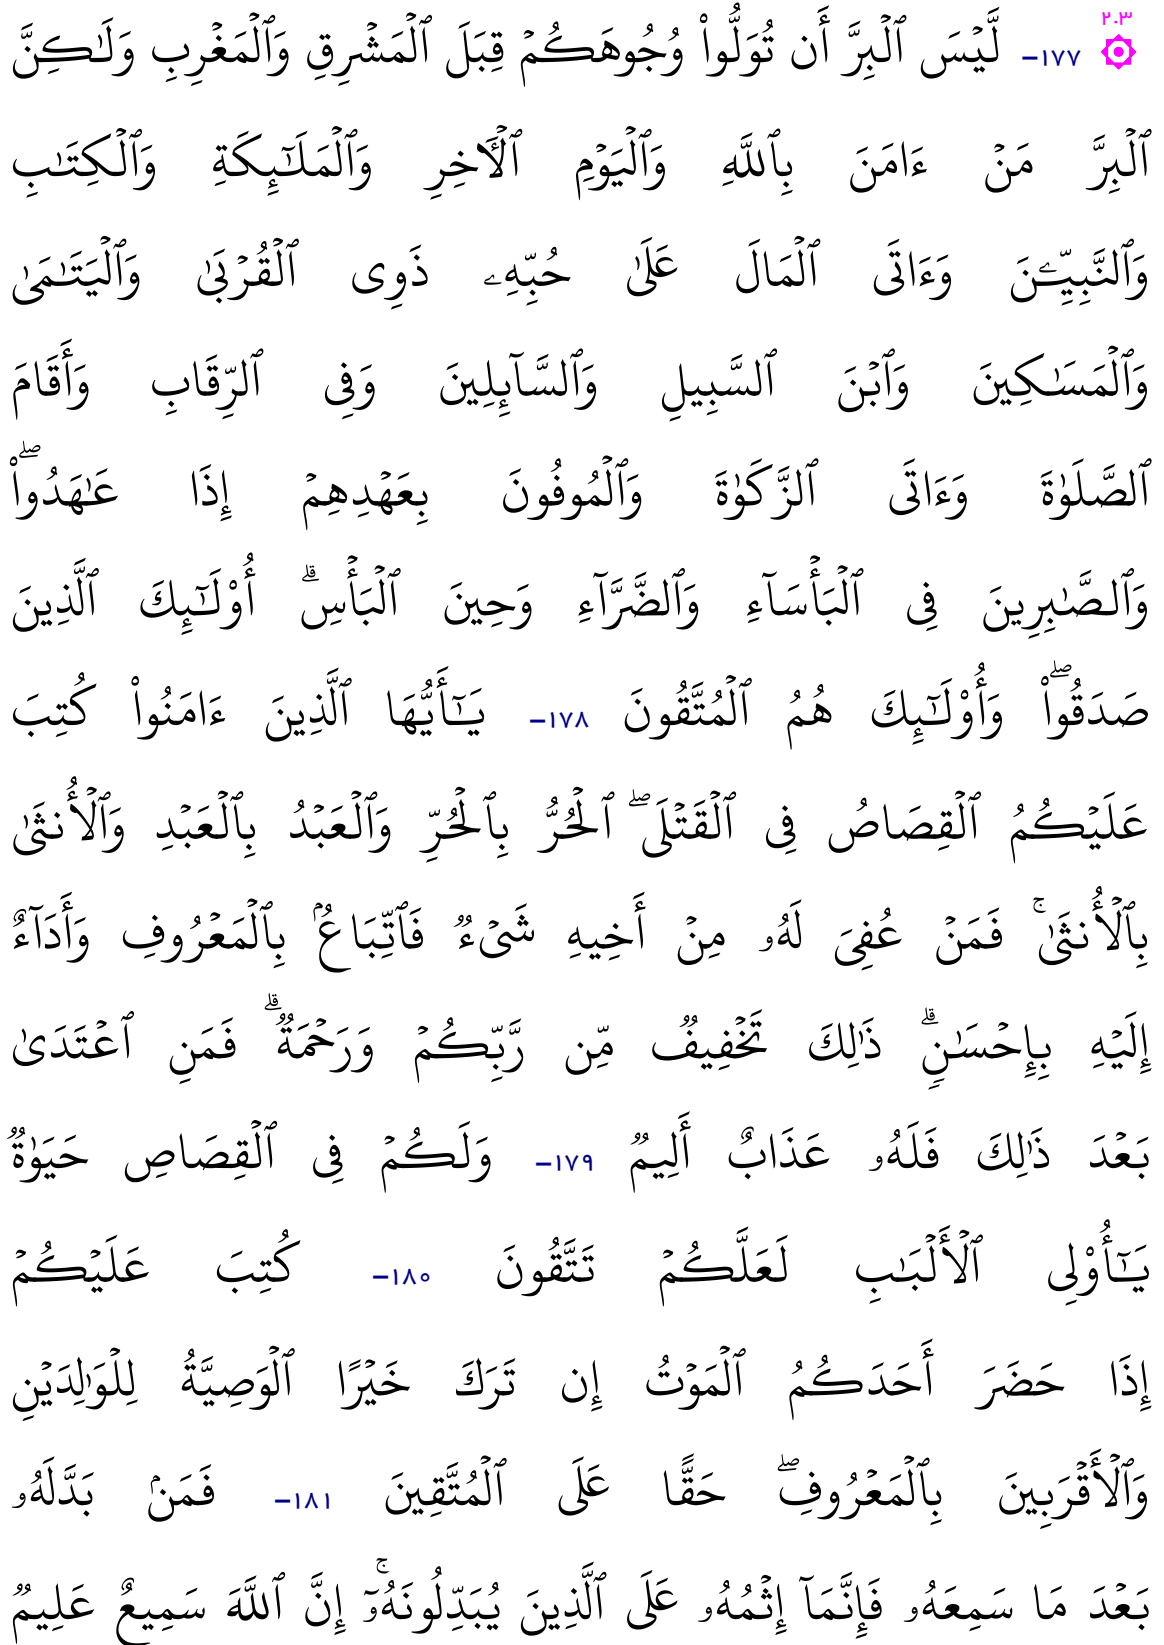 ٢.٣
١٧٧- لَّيْسَ ٱلْبِرَّ أَن تُوَلُّوا۟ وُجُوهَكُمْ قِبَلَ ٱلْمَشْرِقِ وَٱلْمَغْرِبِ وَلَـٰكِنَّ
ٱلْبِرَّ مَنْ ءَامَنَ بِٱللَّهِ وَٱلْيَوْمِ ٱلْـَٔاخِرِ وَٱلْمَلَـٰٓئِكَةِ وَٱلْكِتَـٰبِ
وَٱلنَّبِيِّـۧنَ وَءَاتَى ٱلْمَالَ عَلَىٰ حُبِّهِۦ ذَوِى ٱلْقُرْبَىٰ وَٱلْيَتَـٰمَىٰ
وَٱلْمَسَـٰكِينَ وَٱبْنَ ٱلسَّبِيلِ وَٱلسَّآئِلِينَ وَفِى ٱلرِّقَابِ وَأَقَامَ
ٱلصَّلَوٰةَ وَءَاتَى ٱلزَّكَوٰةَ وَٱلْمُوفُونَ بِعَهْدِهِمْ إِذَا عَـٰهَدُوا۟ۖ
وَٱلصَّـٰبِرِينَ فِى ٱلْبَأْسَآءِ وَٱلضَّرَّآءِ وَحِينَ ٱلْبَأْسِۗ أُو۟لَـٰٓئِكَ ٱلَّذِينَ
صَدَقُوا۟ۖ وَأُو۟لَـٰٓئِكَ هُمُ ٱلْمُتَّقُونَ ١٧٨- يَـٰٓأَيُّهَا ٱلَّذِينَ ءَامَنُوا۟ كُتِبَ
عَلَيْكُمُ ٱلْقِصَاصُ فِى ٱلْقَتْلَىۖ ٱلْحُرُّ بِٱلْحُرِّ وَٱلْعَبْدُ بِٱلْعَبْدِ وَٱلْأُنثَىٰ
بِٱلْأُنثَىٰۚ فَمَنْ عُفِىَ لَهُۥ مِنْ أَخِيهِ شَىْءٌ فَٱتِّبَاعٌۢ بِٱلْمَعْرُوفِ وَأَدَآءٌ
إِلَيْهِ بِإِحْسَـٰنٍۗ ذَٰلِكَ تَخْفِيفٌ مِّن رَّبِّكُمْ وَرَحْمَةٌۗ فَمَنِ ٱعْتَدَىٰ
بَعْدَ ذَٰلِكَ فَلَهُۥ عَذَابٌ أَلِيمٌ ١٧٩- وَلَكُمْ فِى ٱلْقِصَاصِ حَيَوٰةٌ
يَـٰٓأُو۟لِى ٱلْأَلْبَـٰبِ لَعَلَّكُمْ تَتَّقُونَ ١٨٠- كُتِبَ عَلَيْكُمْ
إِذَا حَضَرَ أَحَدَكُمُ ٱلْمَوْتُ إِن تَرَكَ خَيْرًا ٱلْوَصِيَّةُ لِلْوَٰلِدَيْنِ
وَٱلْأَقْرَبِينَ بِٱلْمَعْرُوفِۖ حَقًّا عَلَى ٱلْمُتَّقِينَ ١٨١- فَمَنۢ بَدَّلَهُۥ
بَعْدَ مَا سَمِعَهُۥ فَإِنَّمَآ إِثْمُهُۥ عَلَى ٱلَّذِينَ يُبَدِّلُونَهُۥٓۚ إِنَّ ٱللَّهَ سَمِيعٌ عَلِيمٌ